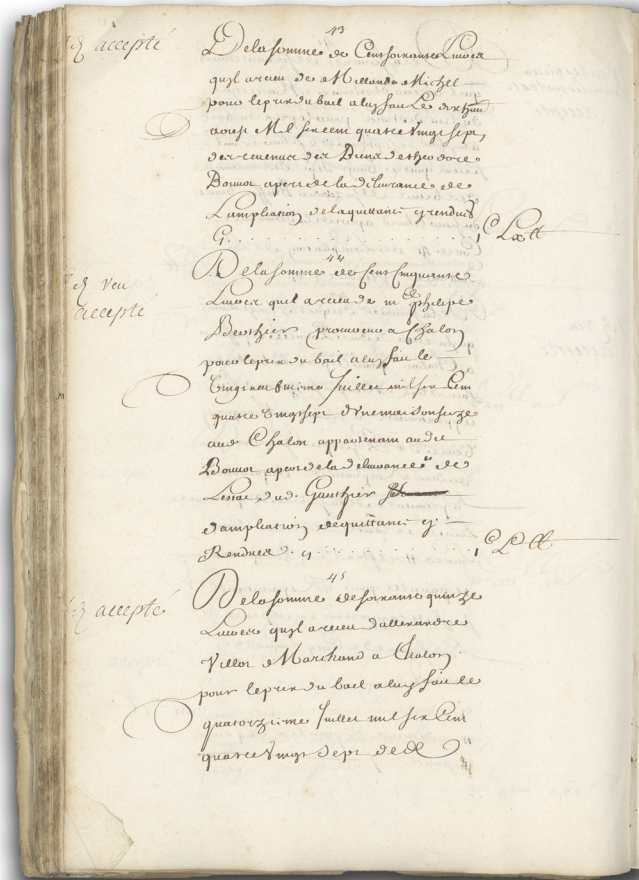 43
accepté
De la somme de Cent soixante Livres
quil a receu de Millande Michel
pour le prix du bail a luy fait Le
aoust Mil six cent quatre Vingt sept,
des revenus des Biens de theodore
de la delivrance de
L'ampliation de la quittance cy rendus
Cy . . . . . . . . C Lx tt
44
veu
accepté
De la somme de Cent Cinquante
Livres quil a receu de m philipe
Berthier procureur a Chalon
pour le prix du bail a luy fait le
Vingt neufvieme Juillet mil six Cent
quatre Vingt sept d'une maison size
aud Chalon appartenant audit
de la delivrance de
dud. Gauthier
d'ampliation de quittance cy
Rendues . cy . . . . . . . C L tt
45
accepté
De la somme de soixante quinze
Livres quil a receu d'allexandre
Villot Marchand a Chalon
pour le prix du bail a luy fait le
quatorzieme Juillet mil six Cent
quatre Vingt sept de